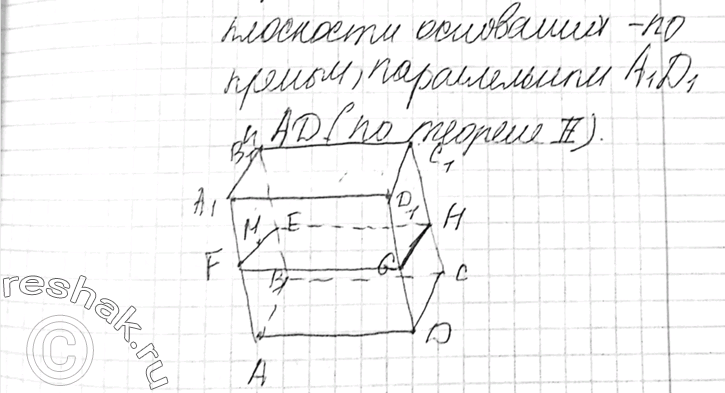 плоскости оснований - по
прямым, параллельным A₁D₁
и AD (по теореме II).
B₁ C₁
A₁ D₁
M E H
F G
B C
A D
reshak.ru
©